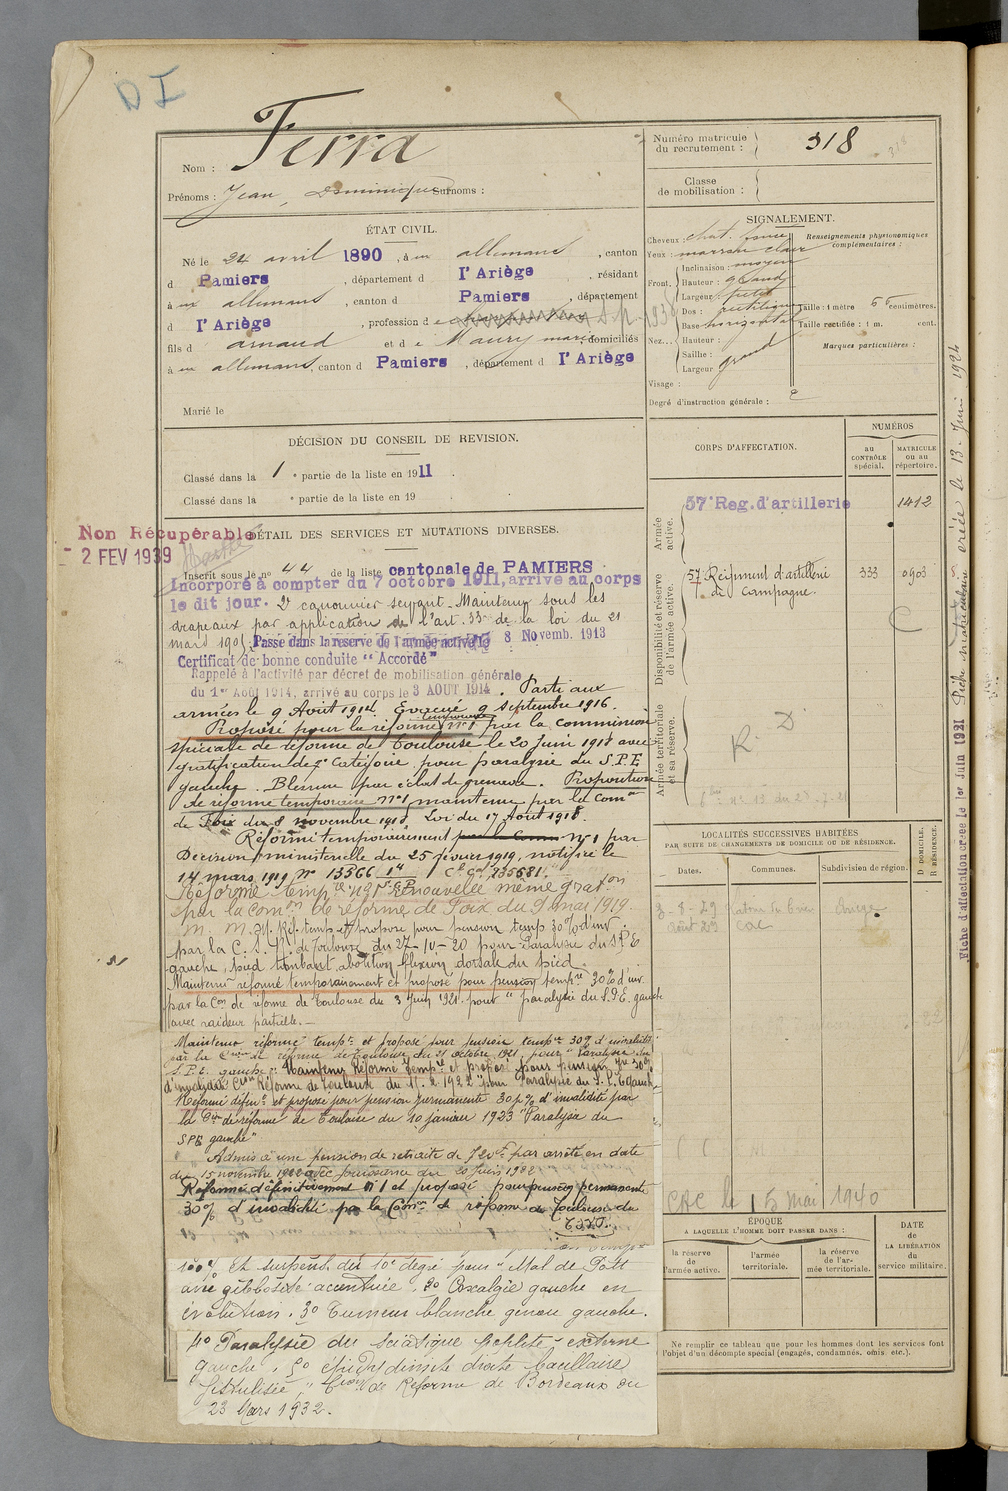 D I
Nom : Ferra
Prénoms : Jean, Dominique Surnoms :
Numéro matricule
du recrutement : 318
318
Classe
de mobilisation :
ÉTAT CIVIL.
Né le 24 avril 1890, à allemans, canton
d Pamiers, département d l'Ariège, résidant
à allemans, canton d Pamiers, département
d l'Ariège, profession de
fils d arnaud et de Maury domiciliés
à allemans, canton d Pamiers, département d l'Ariège
Marié le
SIGNALEMENT.
Cheveux : chat. foncé
Yeux : marron clair
Renseignements physionomiques
complémentaires :
Front. Inclinaison : moyen
Hauteur : grand
Largeur : petit
Nez. Dos : rectiligne
Base : horizontal
Hauteur :
Saillie :
Largeur : grand
Visage :
Degré d'instruction générale : 2
Taille : 1 mètre 66 centimètres.
Taille rectifiée : 1 m. cent.
Marques particulières :
DÉCISION DU CONSEIL DE REVISION.
Classé dans la 1e partie de la liste en 1911.
Classé dans la e partie de la liste en 19
Non Récupérable
- 2 FEV 1939
DÉTAIL DES SERVICES ET MUTATIONS DIVERSES.
Inscrit sous le n° 44 de la liste cantonale de PAMIERS
Incorporé à compter du 7 octobre 1911, arrivé au corps
le dit jour. 2e canonnier servant. Maintenu sous les
drapeaux par application de l'art. 33 de la loi du 21
mars 1905. Passé dans la réserve de l'armée active le 8 Novemb. 1913
Certificat de bonne conduite "Accordé"
Rappelé à l'activité par décret de mobilisation générale
du 1er Août 1914, arrivé au corps le 3 AOUT 1914. Parti aux
armées le 9 Août 1914. Evacué 9 septembre 1916.
Proposé pour la réforme temporaire n°1 par la commission
spéciale de réforme de Toulouse le 20 Juin 1918 avec
gratification de 7e Catégorie pour paralysie du S.P.E
gauche. Blessure par éclat de grenade. Proposition
de réforme temporaire n°1 maintenue par la Comon
de Foix du 8 novembre 1918. Loi du 17 Août 1918.
Réformé temporairement par la Comm n°1 par
Décision ministérielle du 25 février 1919, notifiée le
14 mars 1919 N° 13366
Réforme tempre n°1 renouvelée même graton
par la comon de réforme de Foix du 9 mai 1919.
Réf. temp. et proposé pour pension temp 30% d'inv
par la C. S. R. de Toulouse du 27-10-20 pour Paralysie du S.P.E
gauche, pied tombant, abolition flexion dorsale du pied.
Maintenu réformé temporairement et proposé pour pension tempre 30% d'inv.
par la Con de réforme de Toulouse du 3 Juin 1921 pour "paralysie du S.P.E. gauche
avec raideur partielle.
Maintenu réformé tempre et proposé pour pension tempre 30% d'invalidité
par la Cion de réforme de Toulouse du 21 octobre 1921 pour "Paralysie du
S.P.E. gauche". Maintenu Réformé Tempre et proposé pour pension Tre 30%
d'invalidité Con Réforme de Toulouse du 11.2.1922 "pour Paralysie du S.P.E Gauche
Réformé défint et proposé pour pension permanente 30% d'invalidité par
la Con de réforme de Toulouse du 10 janvier 1923 "Paralysie du
SPE gauche"
Admis à une pension de retraite de 720f par arrêté en date
du 15 novembre 1922 avec jouissance du 20 juin 1922
Réformé définitivement n°1 et proposé pour pension permanente
30% d'invalidité par la Comon de réforme de Toulouse du
T.S.V.P.
100% et suspens. du 10e degré pour "Mal de Pott
avec gibbosité accentuée. 2° Coxalgie gauche en
évolution. 3° Tumeur blanche genou gauche.
4° Paralysie du sciatique poplité externe
gauche. 5° épididymite droite bacillaire
fistulisée", Cion de Réforme de Bordeaux du
23 Mars 1932.
CORPS D'AFFECTATION.
NUMÉROS
au
CONTRÔLE
spécial.
MATRICULE
ou au
répertoire.
Armée
active.
57e Reg. d'artillerie 1412
Disponibilité et réserve
de l'armée active.
57e Régiment d'artillerie 333 0903
de Campagne.
C
Armée territoriale
et sa réserve.
R. D
LOCALITÉS SUCCESSIVES HABITÉES
PAR SUITE DE CHANGEMENTS DE DOMICILE OU DE RÉSIDENCE.
Dates.
Communes.
Subdivision de région.
D DOMICILE.
R RÉSIDENCE.
CAC le 15 Mai 1940
ÉPOQUE
A LAQUELLE L'HOMME DOIT PASSER DANS :
la réserve
de l'armée active.
l'armée
territoriale.
la réserve
de l'ar-
mée territoriale.
DATE
de
LA LIBÉRATION
du
service militaire.
Ne remplir ce tableau que pour les hommes dont les services font
l'objet d'un décompte spécial (engagés, condamnés, omis, etc.).
Fiche d'affectation créée le 1er Juin 1921 Fiche matriculaire créée le 13 Juin 1924